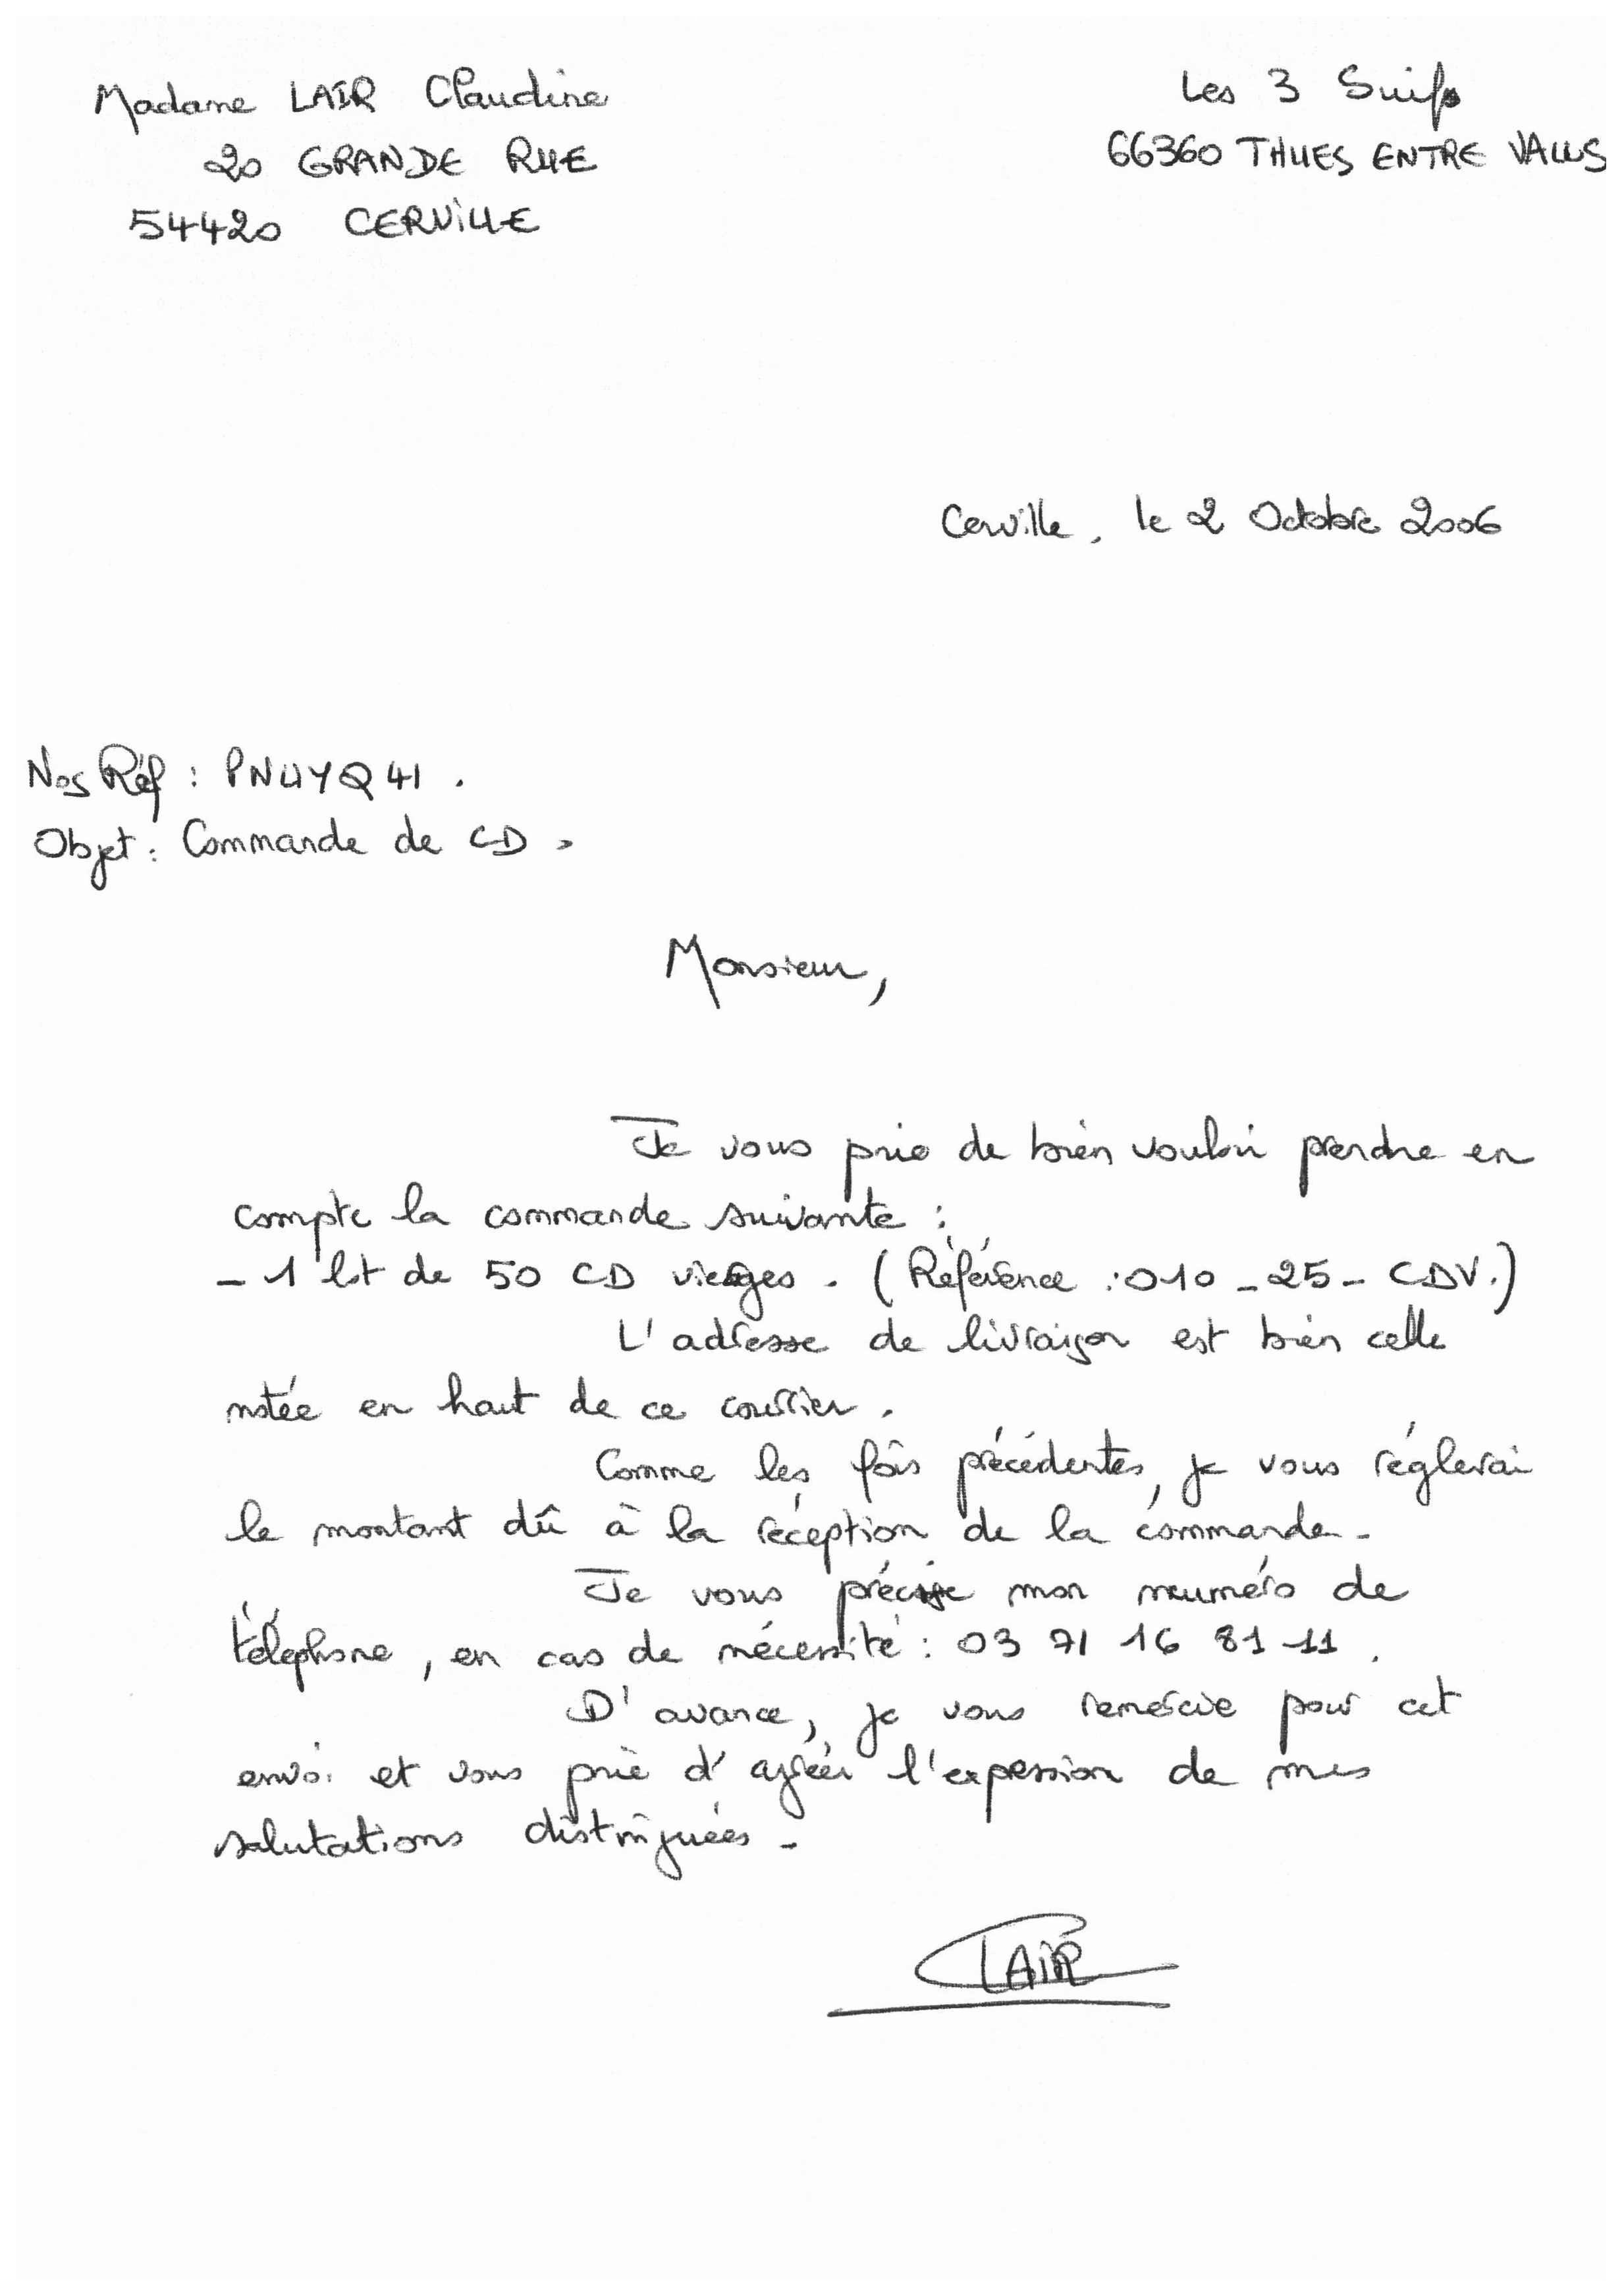 Madame LAIR Claudine
20 GRANDE RUE
54420 CERVILLE
Les 3 Suifs
66360 THUES ENTRE VALLS
Cerville, le 2 Octobre 2006
Nos Réf : PNUYQ41.
Objet : Commande de CD.
Monsieur,
Je vous prie de bien vouloir prendre en
compte la commande suivante :
- 1 lot de 50 CD vierges. (Référence : 010-25-CDV.)
L'adresse de livraison est bien celle
notée en haut de ce courrier.
Comme les fois précédentes, je vous réglerai
le montant dû à la réception de la commande.
Je vous précise mon numéro de
téléphone, en cas de nécessité : 03 71 16 81 11.
D'avance, je vous remercie pour cet
envoi et vous prie d'agréer l'expession de mes
salutations distinguées.
LAIR